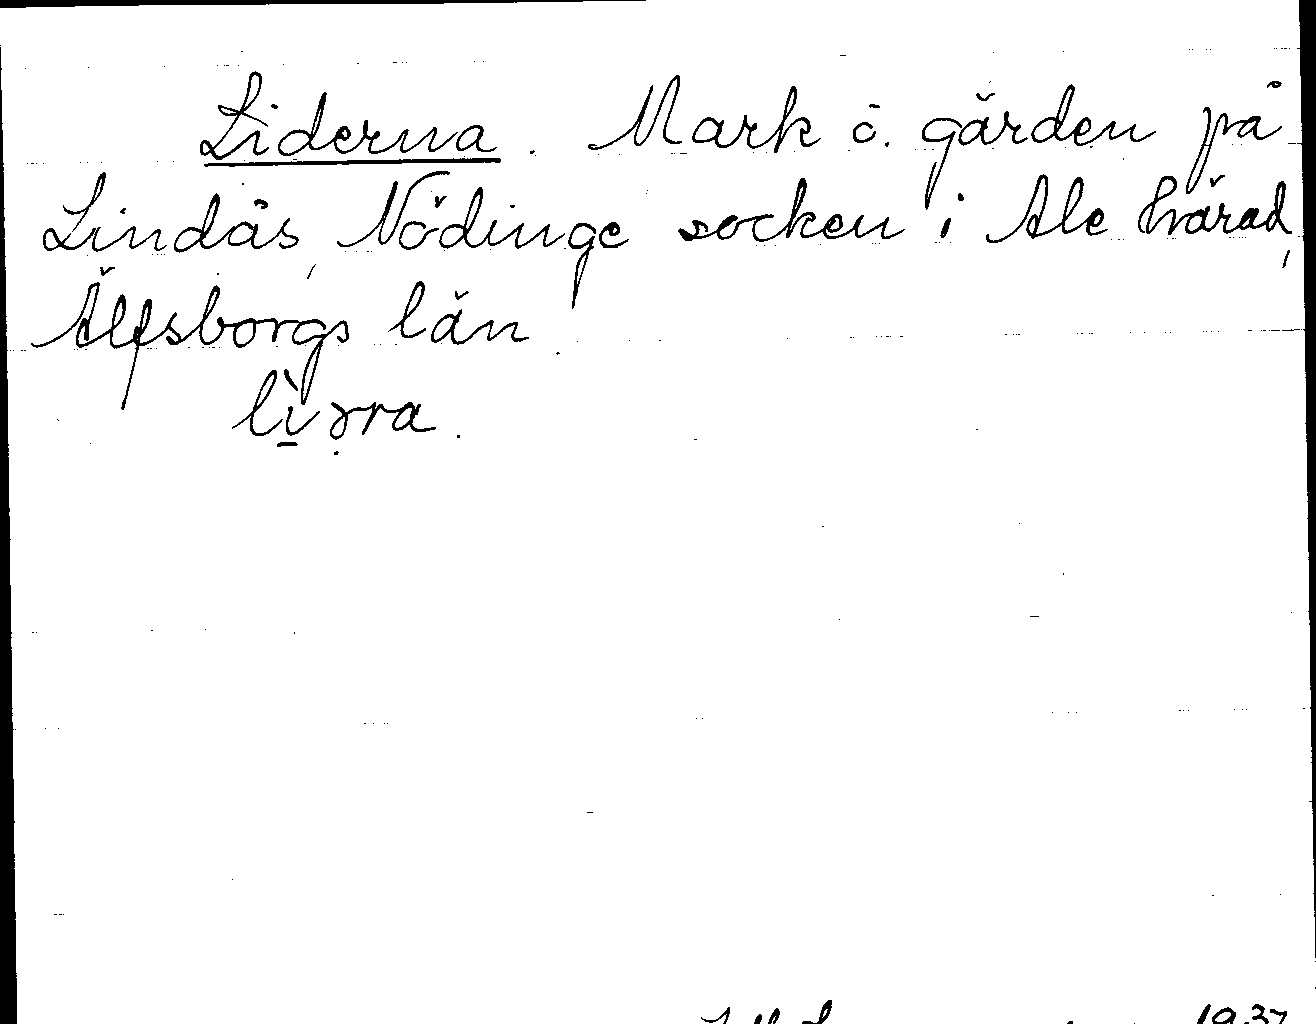 Liderna. Mark ö. gärden på
Lindås, Nödinge socken i Ale härad,
Älfsborgs län.
1937